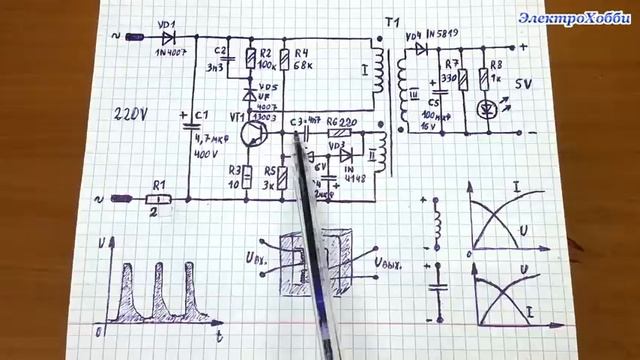 ЭлектроХобби
~
VD1
1N4007
C2
3н3
R2
100к
R4
68к
T1
I
VD4 IN5819
+
VD5
UF
4007
VT1
13003
C3 4н7
R6 220
III
R7
330
R8
1к
5V
C5
100мкФ
16V
220V
C1
4,7мкФ
400V
+
R3
10
R5
3к
6V
VD3
1N
4148
II
+
-
~
R1
2
U
0
t
Uвх.
Uвых.
+
-
+
-
I
U
U
I